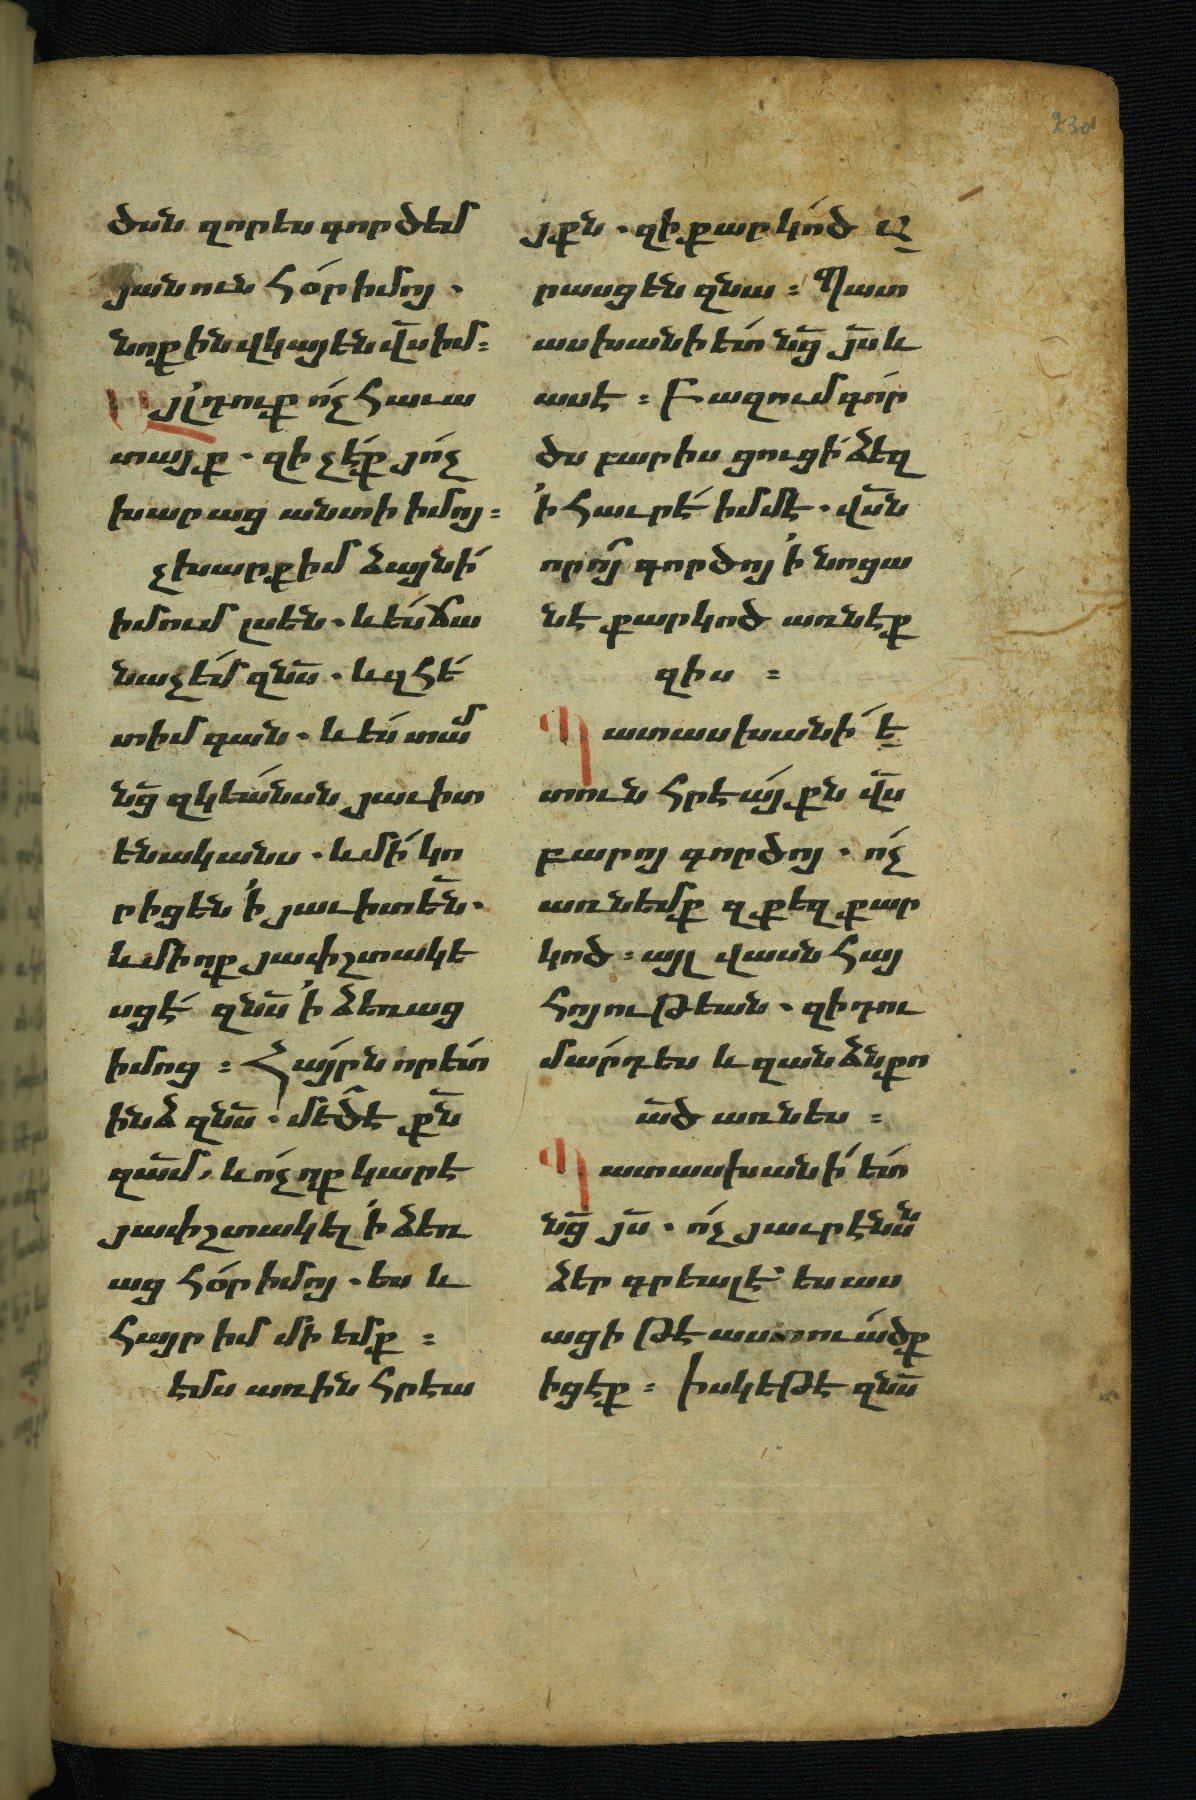 230
ծսն զորես գործեմ
յանուն հօր իմոյ ․
նոքին վկայեն վս̄ իմ ։
Այլ դուք ո՛չ հաւա
տայք ․ զի չէ՛ք յո՛չ
խարաց անտի իմոյ ։
չխարքիմ ձայնի՛
իմում լսեն ․ և ես ճա
նաչեմ զնս̄ ․ և զհե՛
տ իմ գան ․ և ես տամ̄
նց̄ զկեանսն յաւիտ
ենականս ․ և մի՛ կո
րիցեն ՛ի յաւիտեն̄ ․
և մի ոք յափշտակե
սցէ՛ զնս̄ ՛ի ձեռաց
իմոց ։ Հայրն որ ետ
ինձ զնս̄ ․ մեծ է քն̄
զամ̄, և ո՛չ ոք կարէ
յափշտակել ՛ի ձեռ
աց հօր իմոյ ․ ես և
հայր իմ մի եմք ։
եմս առին հրեա
յքն ․ զի քար կոծ ա
րասցեն զնա ։ Պատ
ասխանի ետ նց̄ յս̄ և
ասէ ։ Բազում գոր
ծս բարիս ցուցի ձեզ
՛ի հաւրէ՛ իմմէ ․ վս̄ն
որո՞յ գործոյ ՛ի նոցա
նէ քարկոծ առնէք
զիս ։
Պատասխանի՛ ե
տուն հրեայքն վս̄
բարոյ գործոյ ․ ո՛չ
առնեմք զքեզ քար
կոծ ։ այլ վասն հայ
հոյութեան ․ զի դու
մարդ ես և զանձն քո
ած̄ առնես ։
Պատասխանի՛ ետ
նց̄ յս̄ ․ ո՛չ յաւրէնս̄ն
ձեր գրեալ է՝ ես աս
ացի թէ աստուածք
իցէք ։ Իսկ եթէ զնս̄